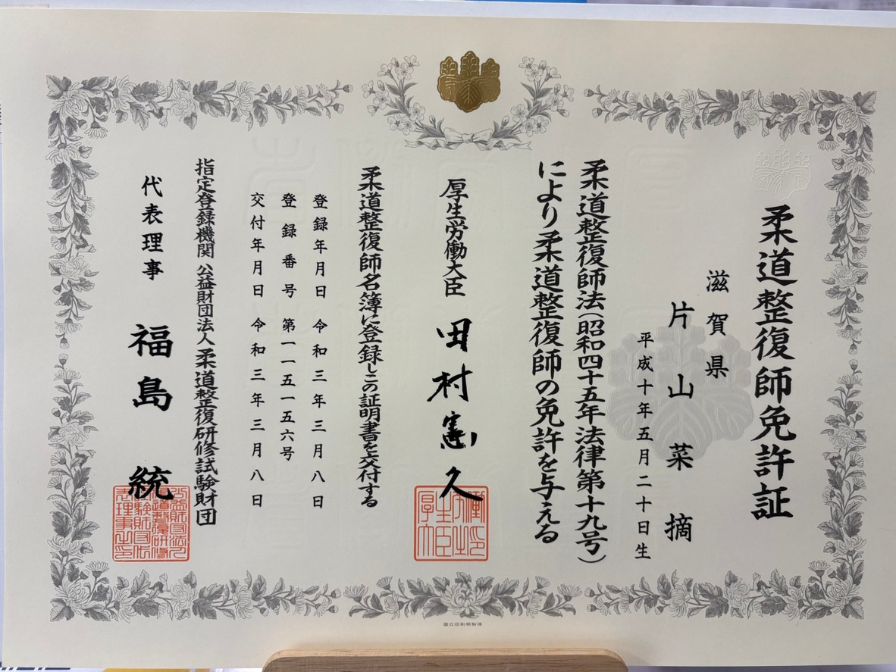 柔道整復師免許証
滋賀県
片山菜摘
平成十年五月二十日生
柔道整復師法(昭和四十五年法律第十九号)
により柔道整復師の免許を与える
厚生労働大臣 田村憲久
柔道整復師名簿に登録しこの証明書を交付する
登録年月日 令和三年三月八日
登録番号 第一一五一五六号
交付年月日 令和三年三月八日
指定登録機関 公益財団法人柔道整復研修試験財団
代表理事 福島統